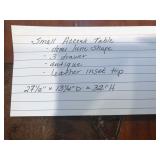 Small Accent Table
- demi lune shape
- 3 drawer
- antique
- leather inset top
27½" x 13½"D x 32"H